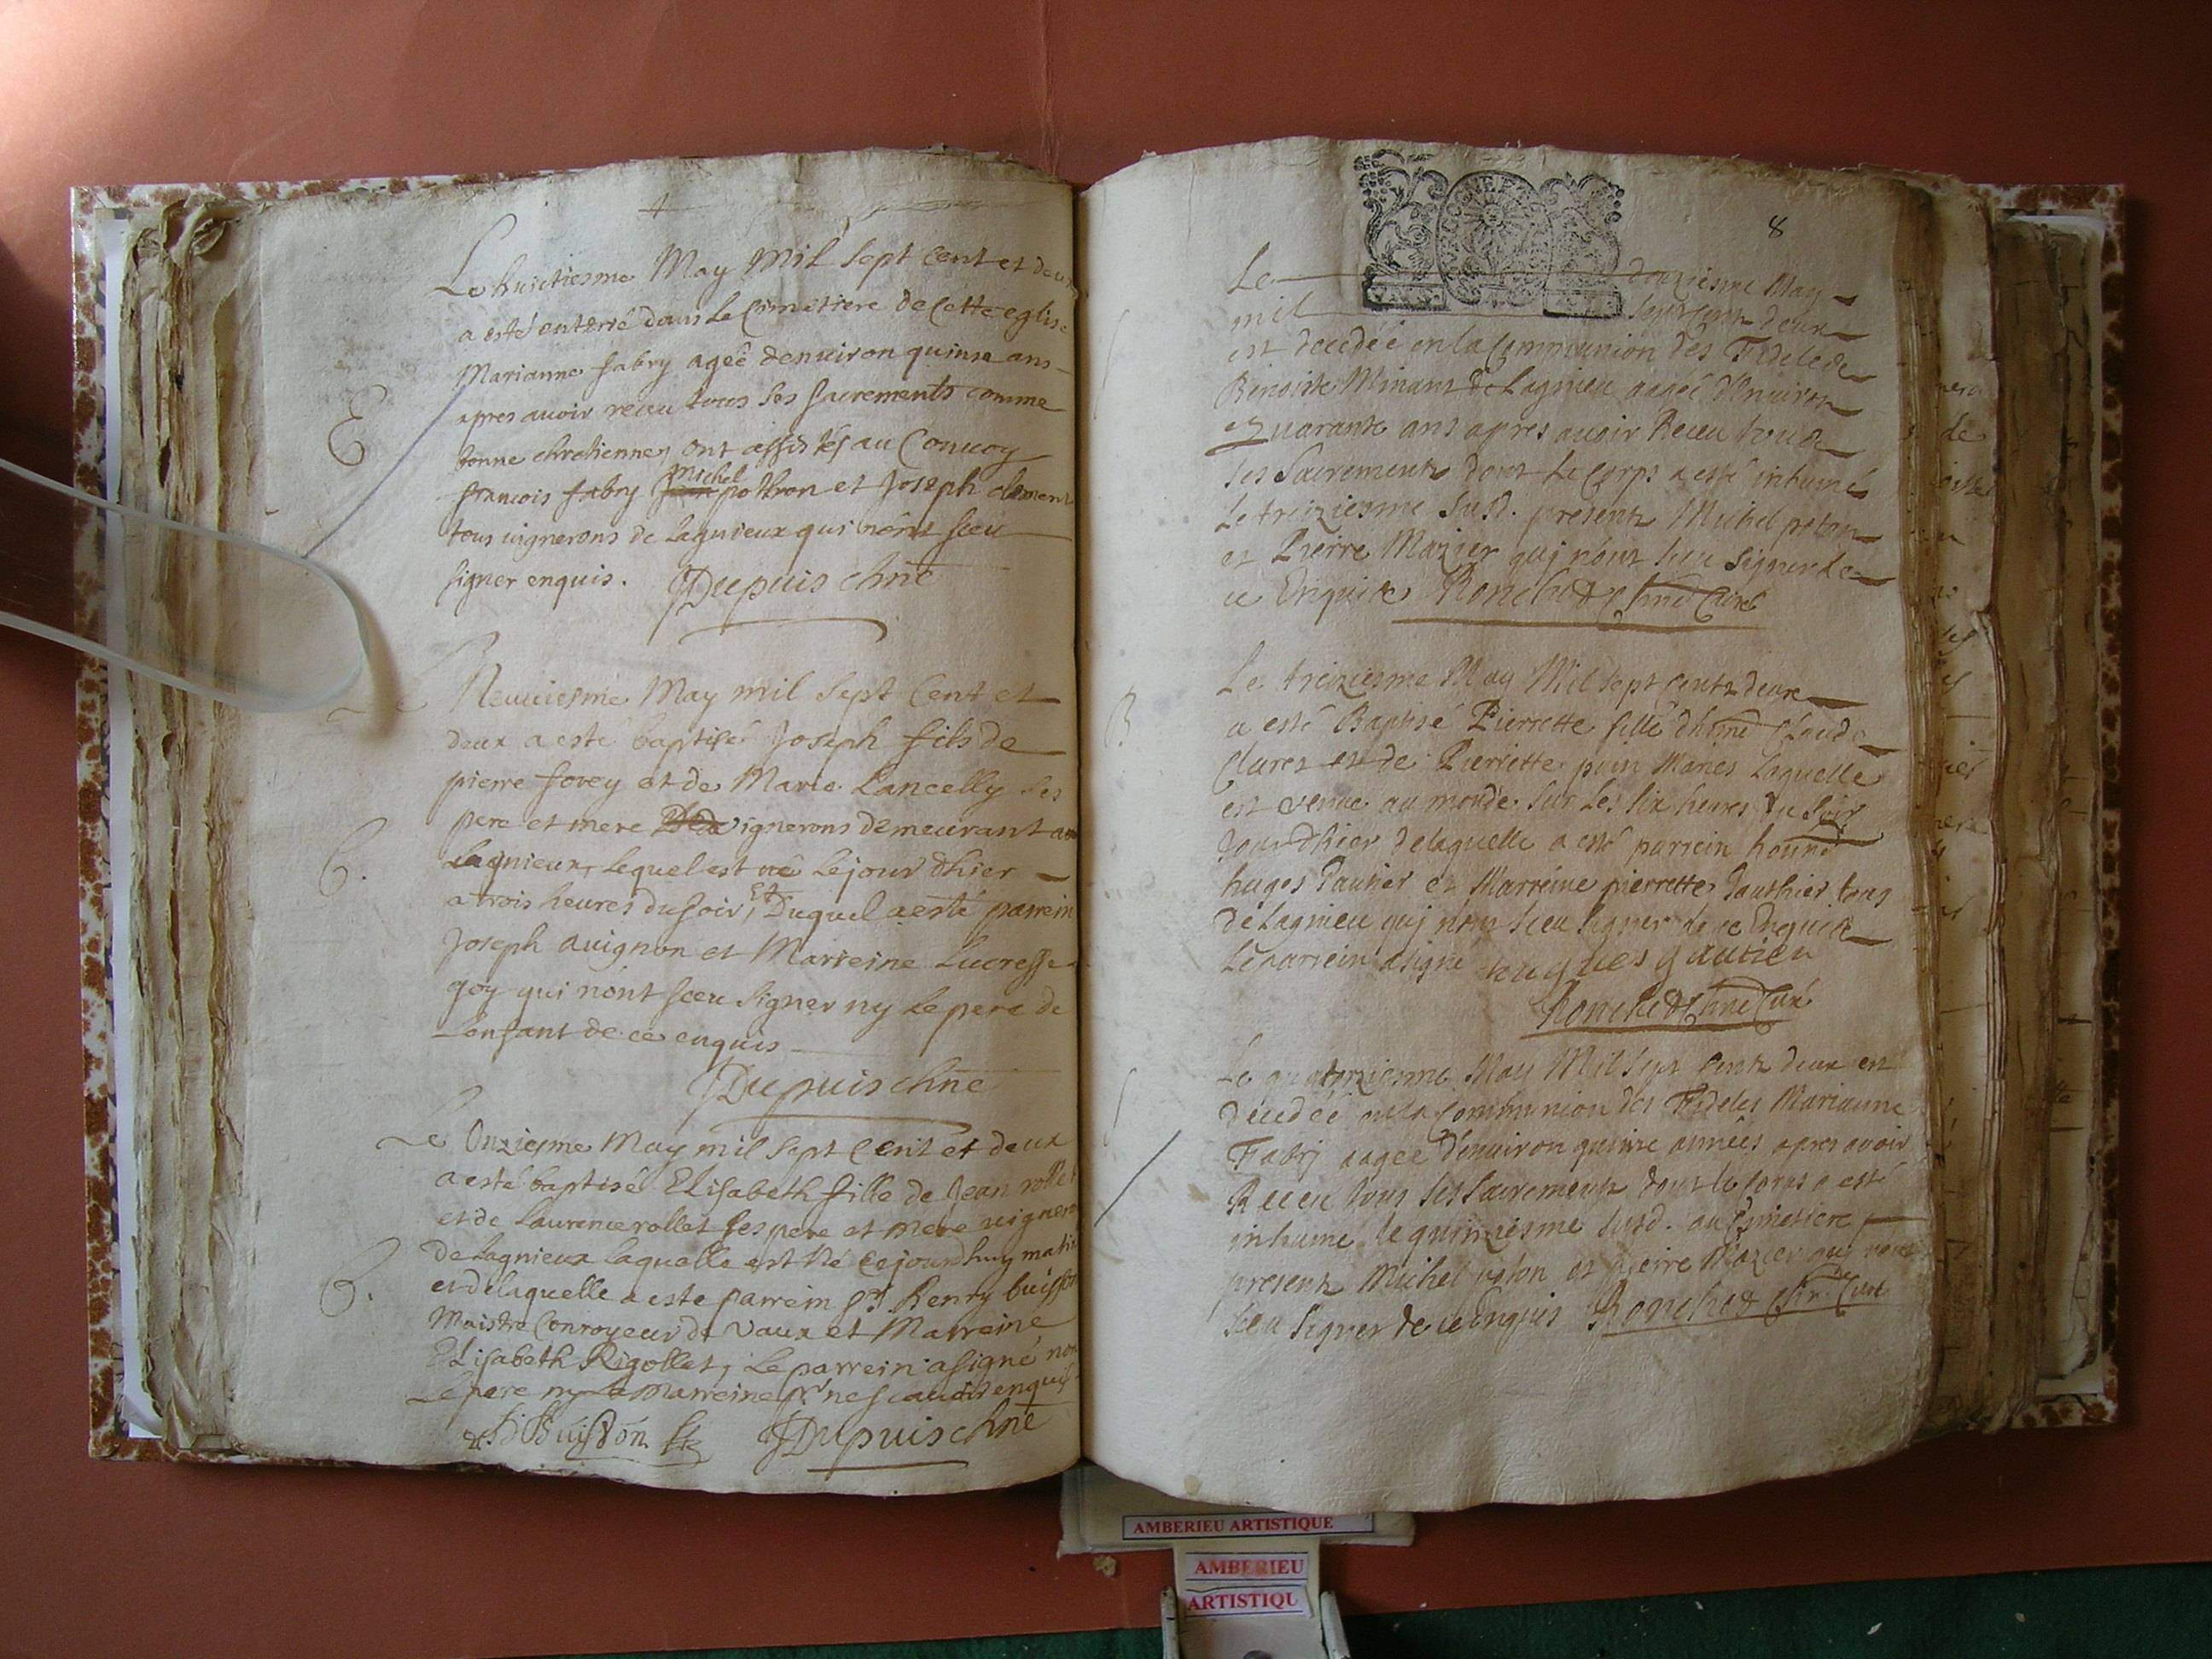 Le huictiesme May mil sept cent et deux
a esté enterré dans Le Cimetiere de Cette eglise
Marianne fabry ageê denuiron quinse ans
apres auoir receu tous ses sacrements comme
bonne chretienne, ont assistés au Conuoy
francois fabry Michel pothon et Joseph clement
tous uignerons de Lagnieux qui nônt sceu
signer enquis. JDupuis chne
E
Le Neuuiesme May mil sept Cent et
deux a esté baptisé Joseph fils de
pierre forey et de Marie Lancelly ses
pere et mere vignerons demeurant au
Lagnieux, Lequel est né Le jour dhier
a trois heures du soir, Et Duquel a esté parrein
Joseph auignon et Marreine Lucresse
goy qui nont sceu signer ny Le pere de
L'enfant de ce enquis
JDupuis chne
B.
Le Onziesme May mil sept Cent et deux
a esté baptisé ELisabeth fille de Jean rollet
et de Laurence rollet ses pere et mere uigneron
de Lagnieux Laquelle est Né cejourdhuy matin
et de laquelle a este parrein sr. Henry buisson
Maistre Conroyeur de Vaux et Marreine
ELisabeth Rigollet, Le parrein a signé non
Le pere ny La Marreine pr. ne scauoir enquis
Buisson JDupuis chne
B.
8
Le douziesme May
mil sept cent deux
est decedéé en la Communion des Fidele de
Benoiste Minant de Lagnieu aagéé d'Enuiron
quarante ans apres auoir Receu tous
ses Sacrements dont Le Corps a esté inhumé
Le treiziesme susd. presents Michel poton
et Pierre Mazier quj n'ont sceu signer de
ce Enquis Ronchet Chne Curé
Le treiziesme May Mil sept cents deux
a esté Baptisé Pierrette fille d'hôné Claude
Claret et de Pierrette Mariés Laquelle
est venue au monde sur Les six heures du soir
Jour d'hier delaquelle a esté parrein honné
huges Gautier et Marreine pierrette Gauthier tous
de Lagnieu quj n'ont sceu signer de ce Enquis
Le parrein a signé hugues gautieu
Ronchet Chne Curé
B
Le quatorziesme May Mil sept Cents deux est
decedéé en la Communion des Fideles Marianne
Fabrj aagée d'enuiron quinze années apres avoir
Receu tous ses Sacrements dont le corps a esté
inhumé le quinziesme susd. au Cimetiere
presents Michel poton et pierre Mazier quj n'ont
sceu signer de ce Enquis Ronchet Chne Curé
AMBERIEU ARTISTIQUE
AMBERIEU
ARTISTIQU